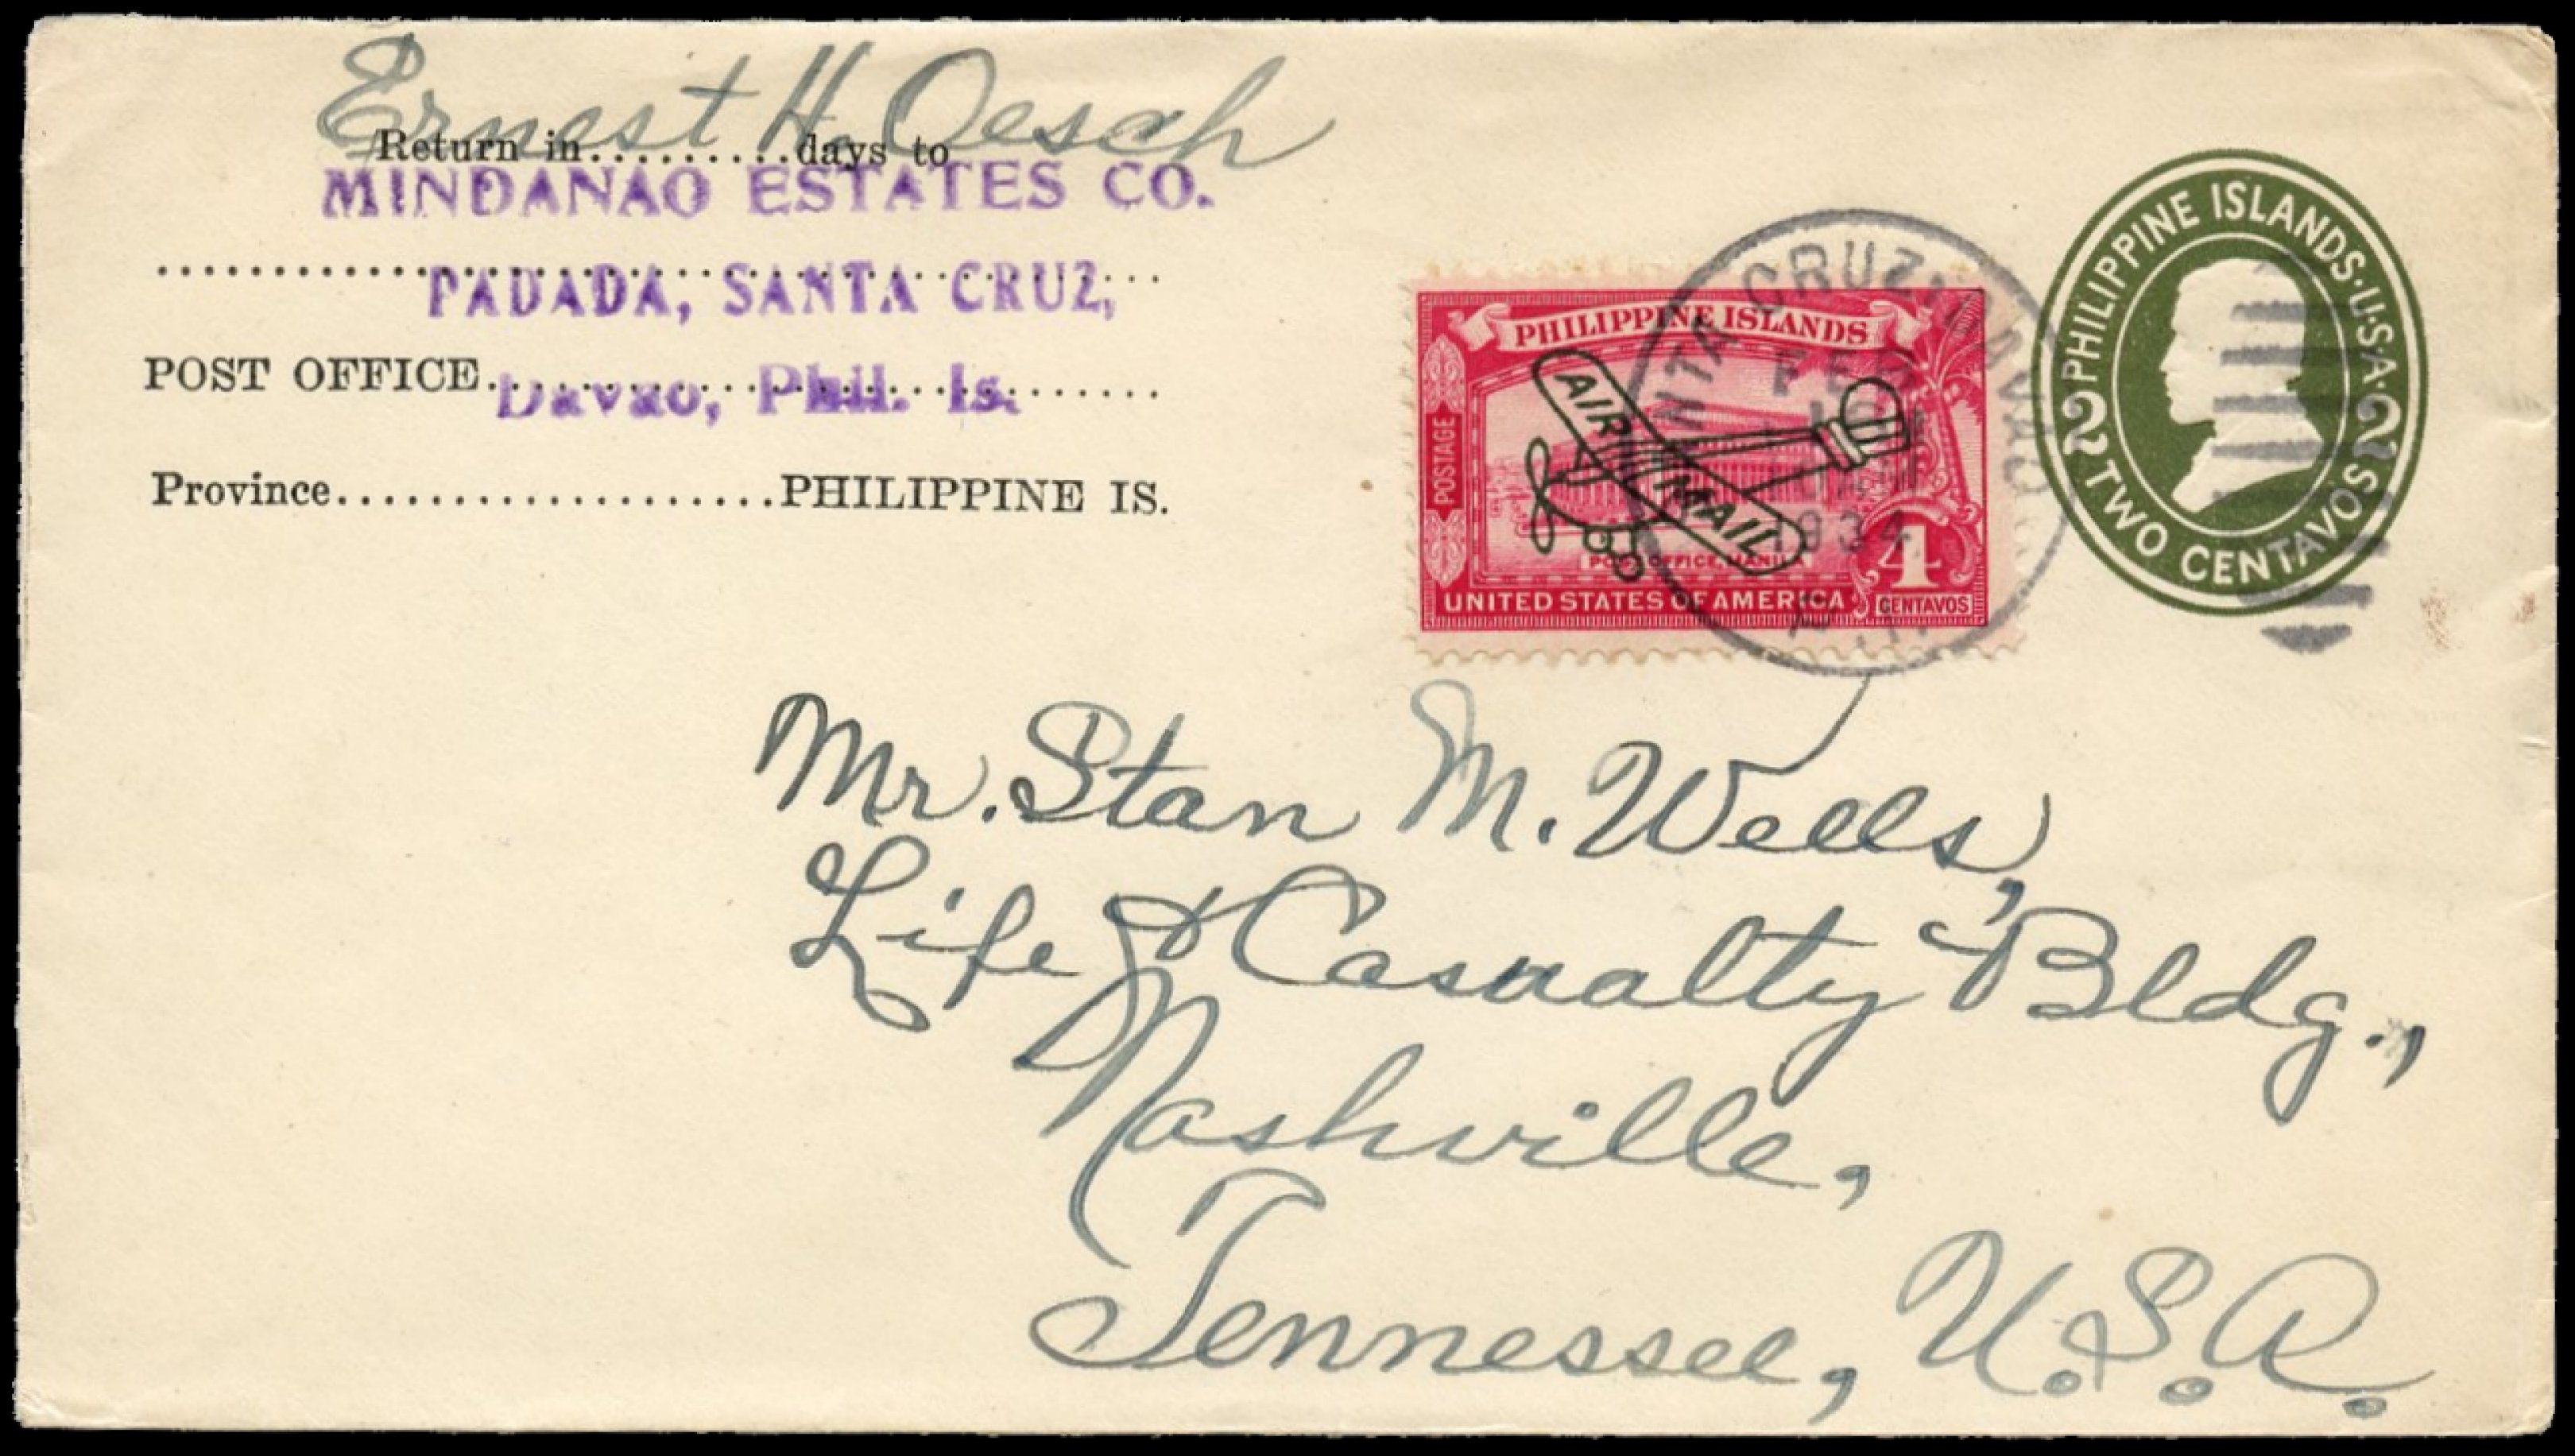 Ernest H. Oesch
Return in.........days to
MINDANAO ESTATES CO.
PADADA, SANTA CRUZ,
POST OFFICE
Davao, Phil. Is.
Province....................PHILIPPINE IS.
PHILIPPINE ISLANDS
POSTAGE
AIR MAIL
POST OFFICE, MANILA
4
UNITED STATES OF AMERICA
CENTAVOS
SANTA CRUZ, DAVAO
FEB
1934
P.I.
PHILIPPINE ISLANDS·U·S·A·
2 2
TWO CENTAVOS
Mr. Stan M. Wells,
Life & Casualty Bldg.,
Nashville,
Tennessee, U.S.A.